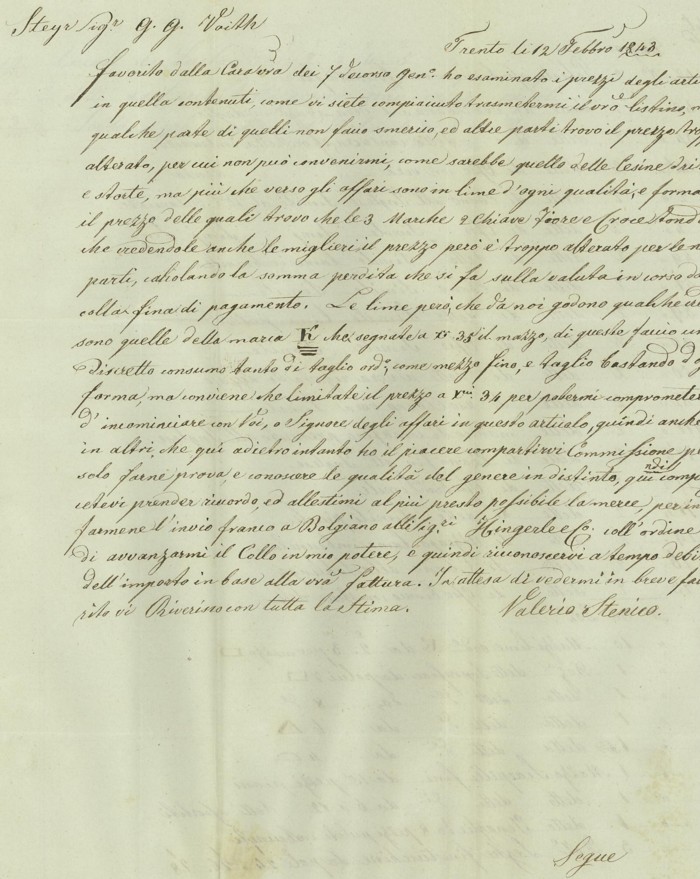 Steyr Sigr G. G. Voith
Trento li 12 Febbro 1843
Favorito dalla Cara vra dei 7 decorso Geno. ho esaminato i prezzi degli arti
in quella contenuti, come vi siete compiaciuto trasmetermi il vro listino,
qualche parte di quelli non facio smercio, ed altre parti trovo il prezzo
alterato, per cui non può convenirmi, come sarebbe quello delle Lesine dri
e storte, ma più che verso gli affari sono in lime d'ogni qualità, e forma
il prezzo delle quali trovo che le 3 Marche 2 Chiave Fiore e Croce
che credendole anche le miglieri il prezzo però è troppo alterato per le n
parti, calcolando la somma perdita che si fa sulla valuta in corso da
colla fina di pagamento. Le lime però, che da noi godono qualche
sono quelle della marca K che segnate a Xr 35 il mazzo, di queste facio un
Discretto consumo tanto di taglio ordo, come mezzo fino, e taglio Bastando d'o
forma, ma conviene che limitate il prezzo a 34 per potermi comprometer
d'incominciare con Voi, o Signore degli affari in questo articolo, quindi anche
in altri, che qui adietro intanto ho il piacere compartirvi Commissione per
solo farne prova, e conoscere le qualità del genere in distinto, quindi comp
cetevi prender ricordo, ed allestirmi al più presto possibile la merce, per in
farmene l'invio franco a Bolgiano alli Sigri Hingerle e Co. coll'ordine
di avvanzarmi il Collo in mio potere, e quindi riconoscervi a tempo debi
dell'imposto in base alla vra fattura. In attesa di vedermi in breve fa
rito vi Riverisco con tutta la Stima. Valerio Stenico.
Segue